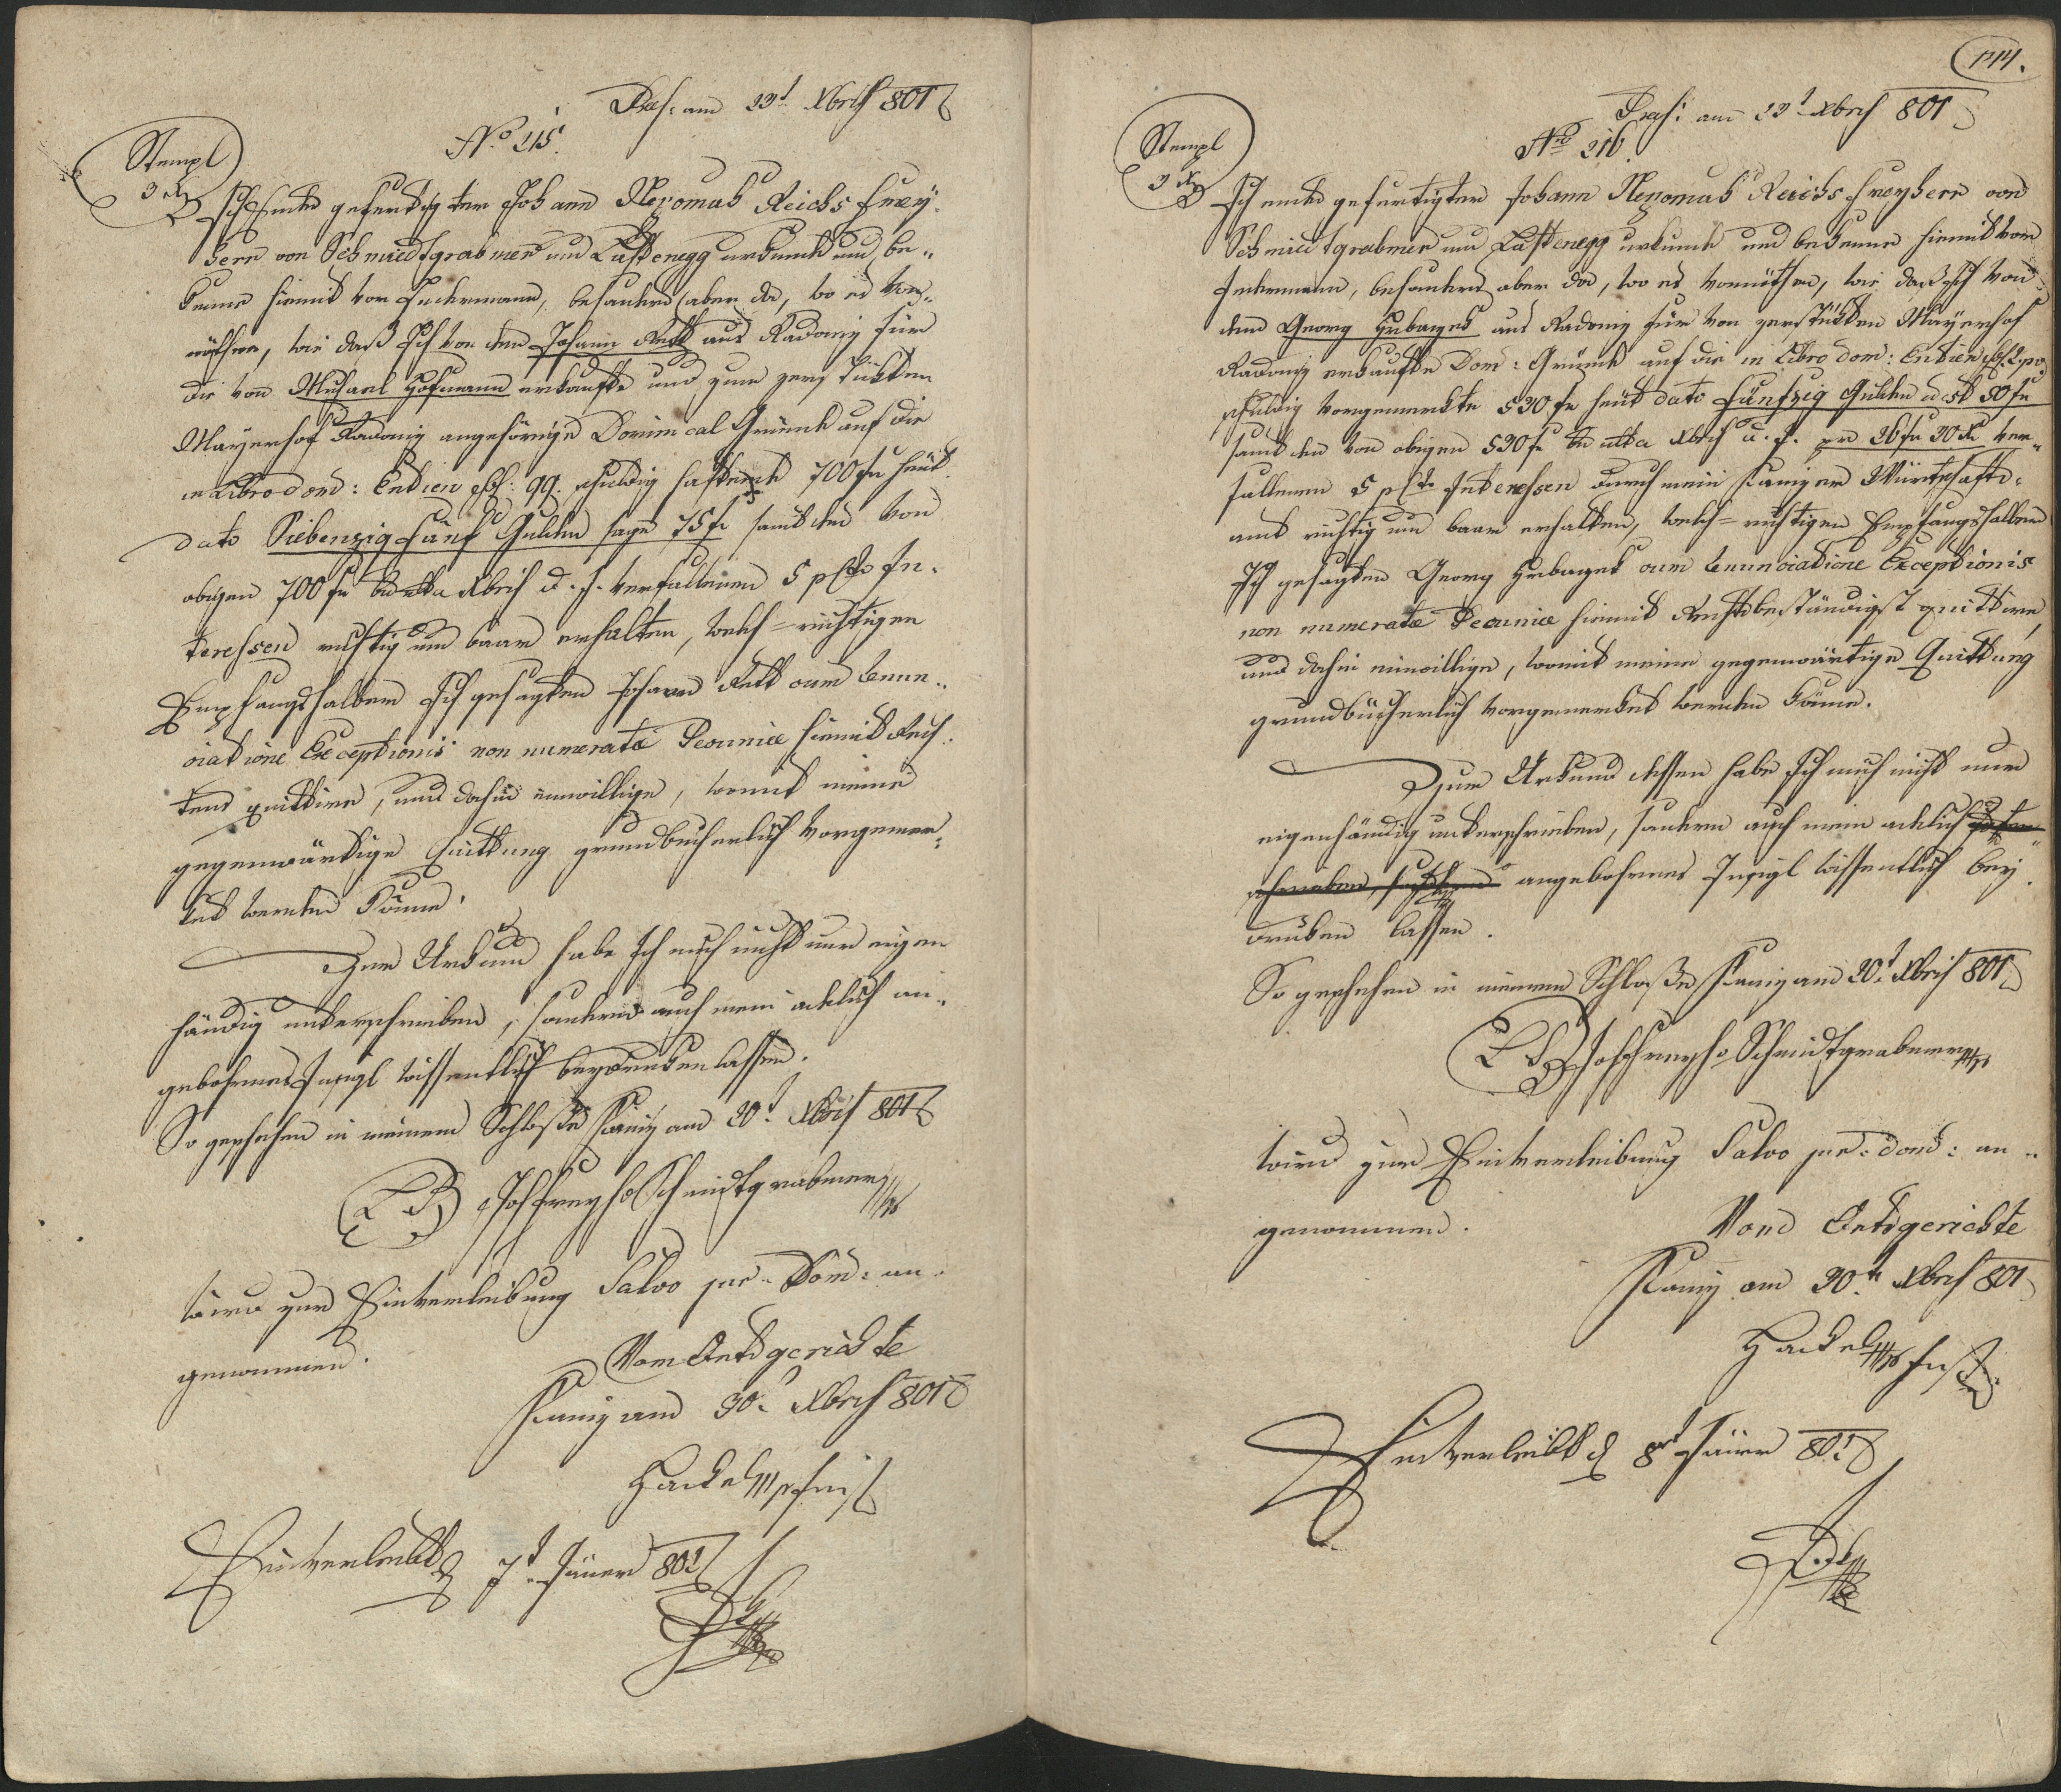 Præs: am 23t Xbris 801
No 215.
Stempl
3 xr
Ich Endesgefertigter Johann Nepomuk Reichs Frey-
herr von Schmiedtgrabner und Lustenegg urkunde und be-
kenne hiemit vor Jedermann, besonders aber da, wo es von-
nöthen, wie daß Ich von dem Johann Rott aus Radonig für
die von Michael Hofmann erkaufte und zum zerstückten
Mayerhof Radonig angehörige Dominical Gründe auf die
in Libro dom: Entien fol: 99. schuldig haftende 700 fr heut
dato Siebenzig fünf Gulden sage 75 fr samt den von
obigen 700 fr bis ultima Xbris d. J. verfallenen 5 pcto In-
teressen richtig und baar erhalten, welch-richtigen
Empfangshalber Ich gesagten Johann Rott cum Renun-
ciatione Exceptionis non numeratæ Pecuniæ hiemit Rech-
tens quittire, und dahin einwillige, womit meine
gegenwärtige Quittung grundbücherlich vorgemer-
ket werden könne.
Zur Urkund habe Ich mich nicht nur eigen
händig unterschrieben, sondern auch mein adelich an-
gebohrnes Insigl wissentlich beydrucken lassen.
So geschehen in meinem Schloße Kaniz am 20t Xbris 801
LS Joh Freyh v Schmidtgrabner mp
wird zur Einverleibung Salvo jure Dom: an-
genommen.
Vom Ortsgerichte
Kaniz am 30t Xbris 801
Hackel mp Just
Einverleibt d 7t Jäner 802
144.
Præs: am 23t Xbris 801
No 216.
Stempl
3 xr
Ich endesgefertigter Johann Nepomuk Reichs Freyherr von
Schmiedtgrabner und Lustenegg urkunde und bekenne hiemit vor
Jedermann, besonders aber da, wo es vonnöthen, wie daß ich von
dem Georg Hrbaczek aus Radonig für von zerstückten Mayerhof
Radonig erkaufte Dom: Gründe auf die in Libro dom: Entien fol:
schuldig vorgemerkte 530 fr heut dato Fünfzig Gulden id est 50 fr
samt den von obigen 530 fr bis ultima Xbris d. J. pr 26 fr 30 xr ver-
fallenen 5 pcto Interessen durch mein Kanizer Würtschafts-
amt richtig und baar erhalten, welch-richtigen Empfangshalber
Ich gesagten Georg Hrbaczek cum Renunciatione Exceptionis
non numeratæ Pecuniæ hiemit Rechtsbeständigst quittire,
und dahin einwillige, womit meine gegenwärtige Quittung
grundbücherlich vorgemerket werden könne.
Zur Urkund dessen habe Ich mich nicht nur
eigenhändig unterschrieben, sondern auch mein adelich
angebohrnes Insigl wissentlich bey-
drucken lassen.
So geschehen in meinem Schloße Kaniz am 20t Xbris 801
LS Joh Freyh v Schmidtgrabner mp
wird zur Einverleibung Salvo jure dom: an-
genommen.
Vom Ortsgerichte
Kaniz am 30t Xbris 801
Hackel mp Just
Einverleibt d 8t Jäner 802